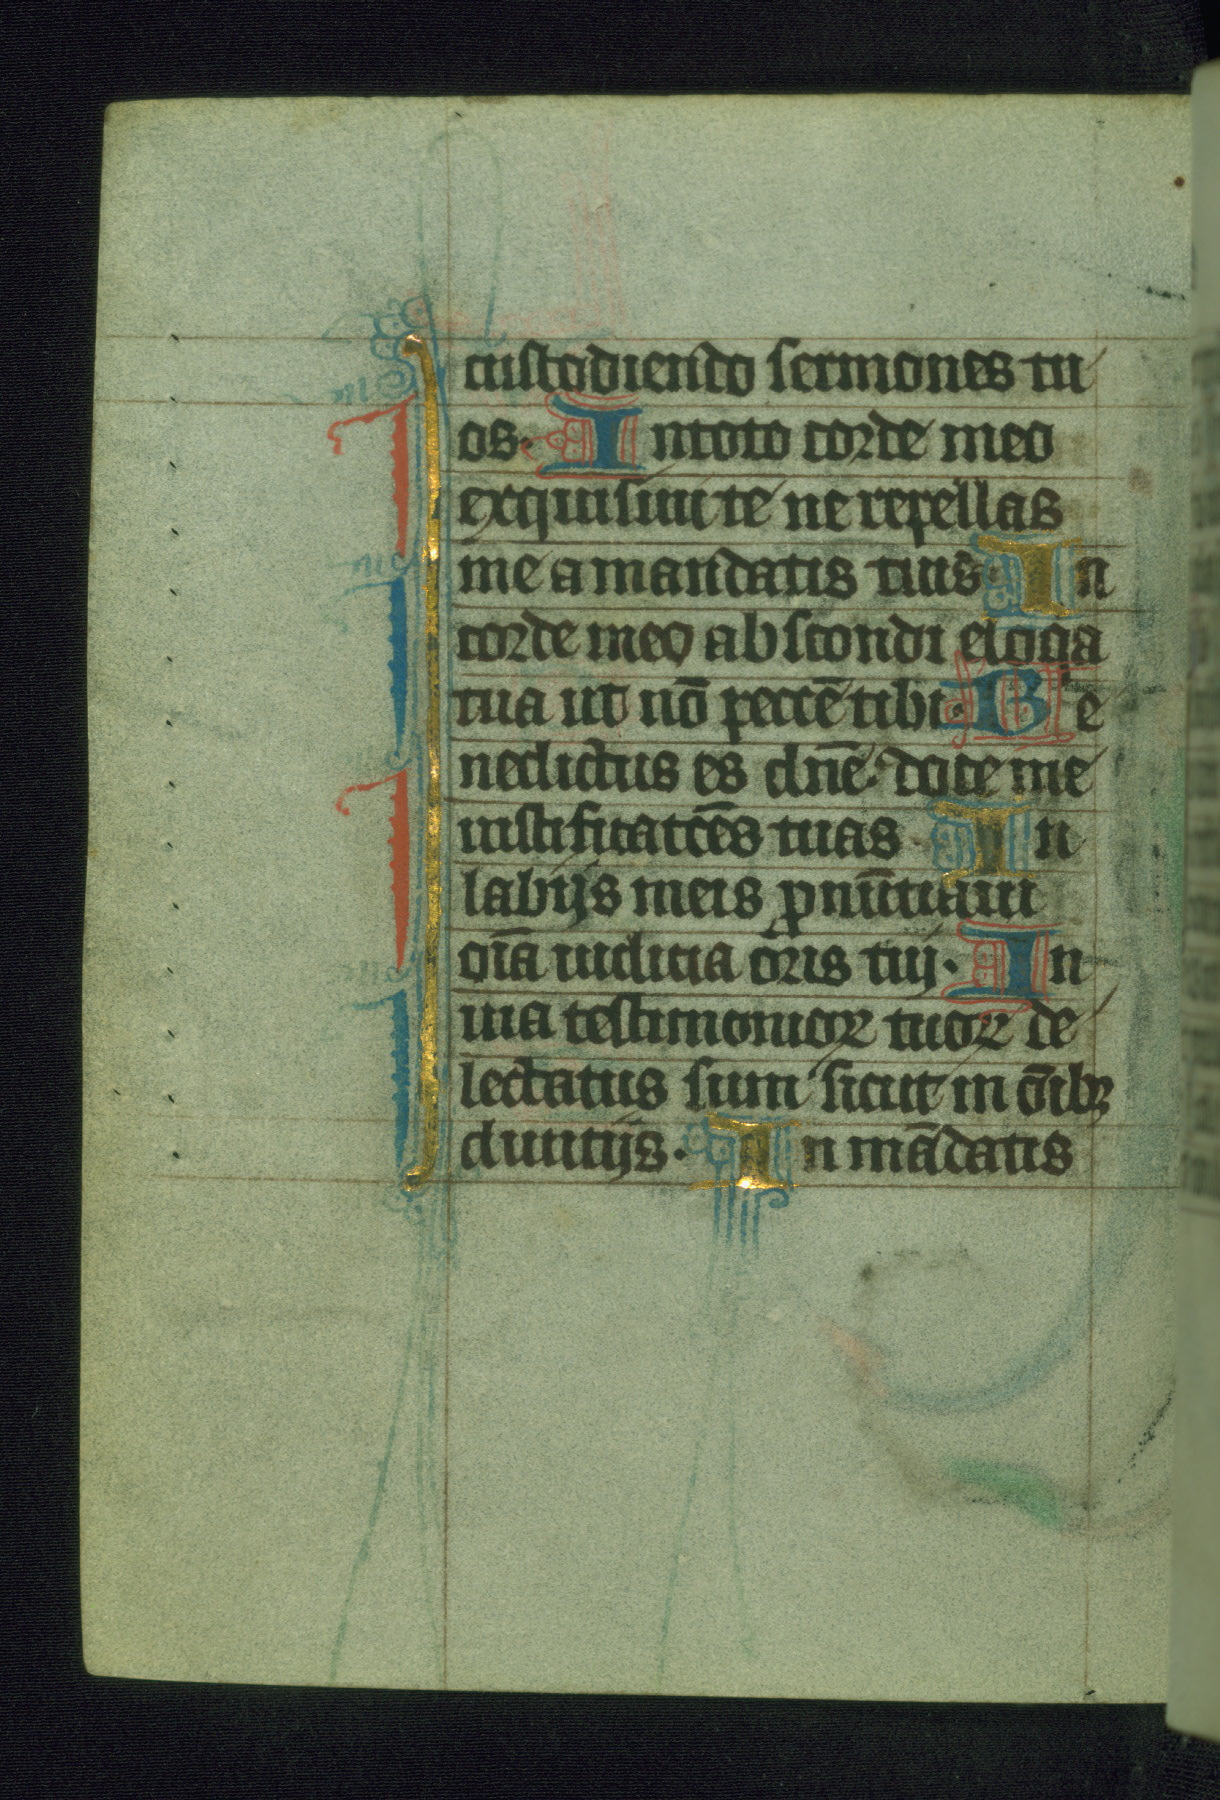 custodiendo sermones tu
os. In toto corde meo
exquisiui te ne repellas
me a mandatis tuis. In
corde meo abscondi eloqa
tua ut nō peccē tibi. Be
nedictus es dn̄e. doce me
iustificatcēs tuas. In
labijs meis ꝓnūtiaui
oīa iudicia ōris tui. In
uia testimonioꝝ tuoꝝ de
lectatus sum sicut in ōibꝫ
diuitijs. In mādatis